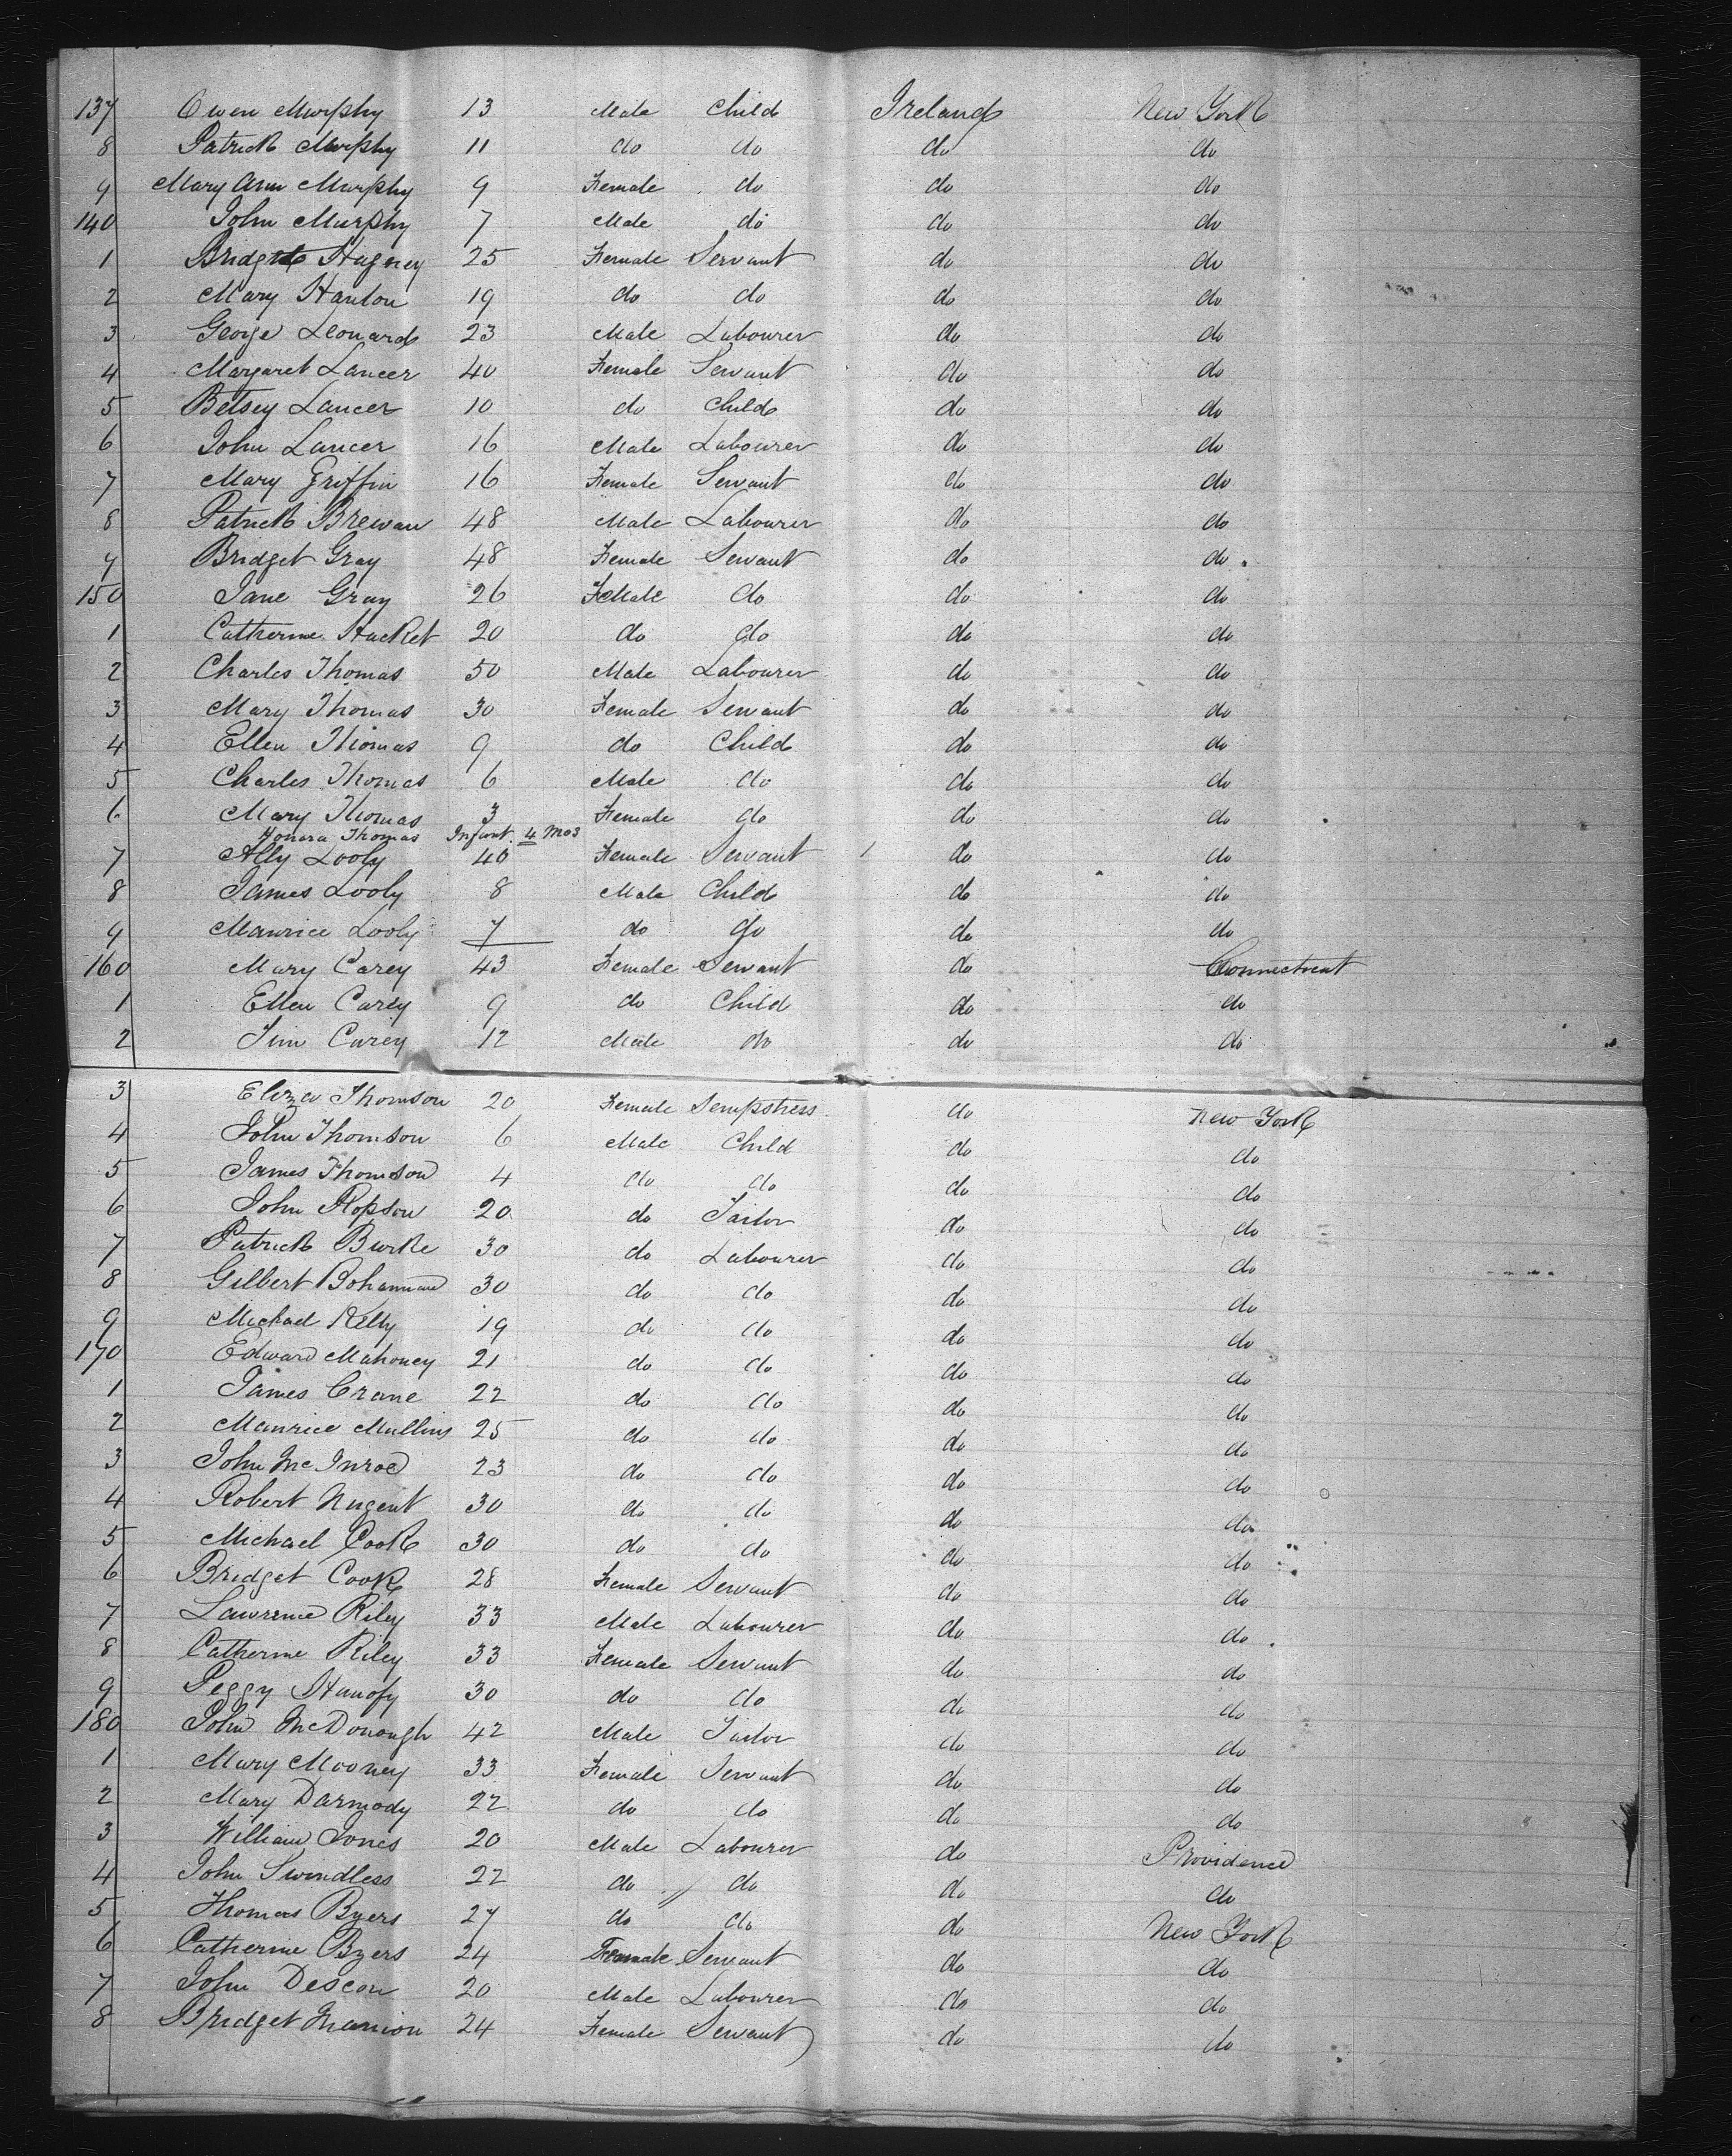 137 Owen Murphy 13 Male Child Ireland New York
8 Patrick Murphy 11 do do do do
9 Mary Ann Murphy 9 Female do do do
140 John Murphy 7 Male do do do
1 Bridget Hagney 25 Female Servant do do
2 Mary Hanlon 19 do do do do
3 George Leonard 23 Male Labourer do do
4 Margaret Lancer 40 Female Servant do do
5 Betsey Lancer 10 do Child do do
6 John Lancer 16 Male Labourer do do
7 Mary Griffin 16 Female Servant do do
8 Patrick Brewan 48 Male Labourer do do
9 Bridget Gray 48 Female Servant do do
150 Jane Gray 26 FeMale do do do
1 Catherine Hacket 20 do do do do
2 Charles Thomas 50 Male Labourer do do
3 Mary Thomas 30 Female Servant do do
4 Ellen Thomas 9 do Child do do
5 Charles Thomas 6 Male do do do
6 Mary Thomas 3 Female do do do
Honora Thomas Infant 4 Mos
7 Ally Looly 40 Female Servant do do
8 James Looly 8 Male Child do do
9 Maurice Looly 7 do do do do
160 Mary Carey 43 Female Servant do Connecticut
1 Ellen Carey 9 do Child do do
2 Tim Carey 12 Male do do do
3 Eliza Thomson 20 Female Sempstress do New York
4 John Thomson 6 Male Child do do
5 James Thomson 4 do do do do
6 John Hopson 20 do Tailor do do
7 Patrick Burke 30 do Labourer do do
8 Gilbert Bohannan 30 do do do do
9 Michael Kelly 19 do do do do
170 Edward Mahoney 21 do do do do
1 James Crane 22 do do do do
2 Maurice Mullins 25 do do do do
3 John McInroe 23 do do do do
4 Robert Nugent 30 do do do do
5 Michael Cook 30 do do do do
6 Bridget Cook 28 Female Servant do do
7 Lawrence Riley 33 Male Labourer do do
8 Catherine Riley 33 Female Servant do do
9 Peggy Hanofy 30 do do do do
180 John McDonough 42 Male Tailor do do
1 Mary Mooney 33 Female Servant do do
2 Mary Darmody 22 do do do do
3 William Jones 20 Male Labourer do Providence
4 John Swindless 22 do do do do
5 Thomas Byers 27 do do do New York
6 Catherine Byers 24 Female Servant do do
7 John Descon 20 Male Labourer do do
8 Bridget Manion 24 Female Servant do do